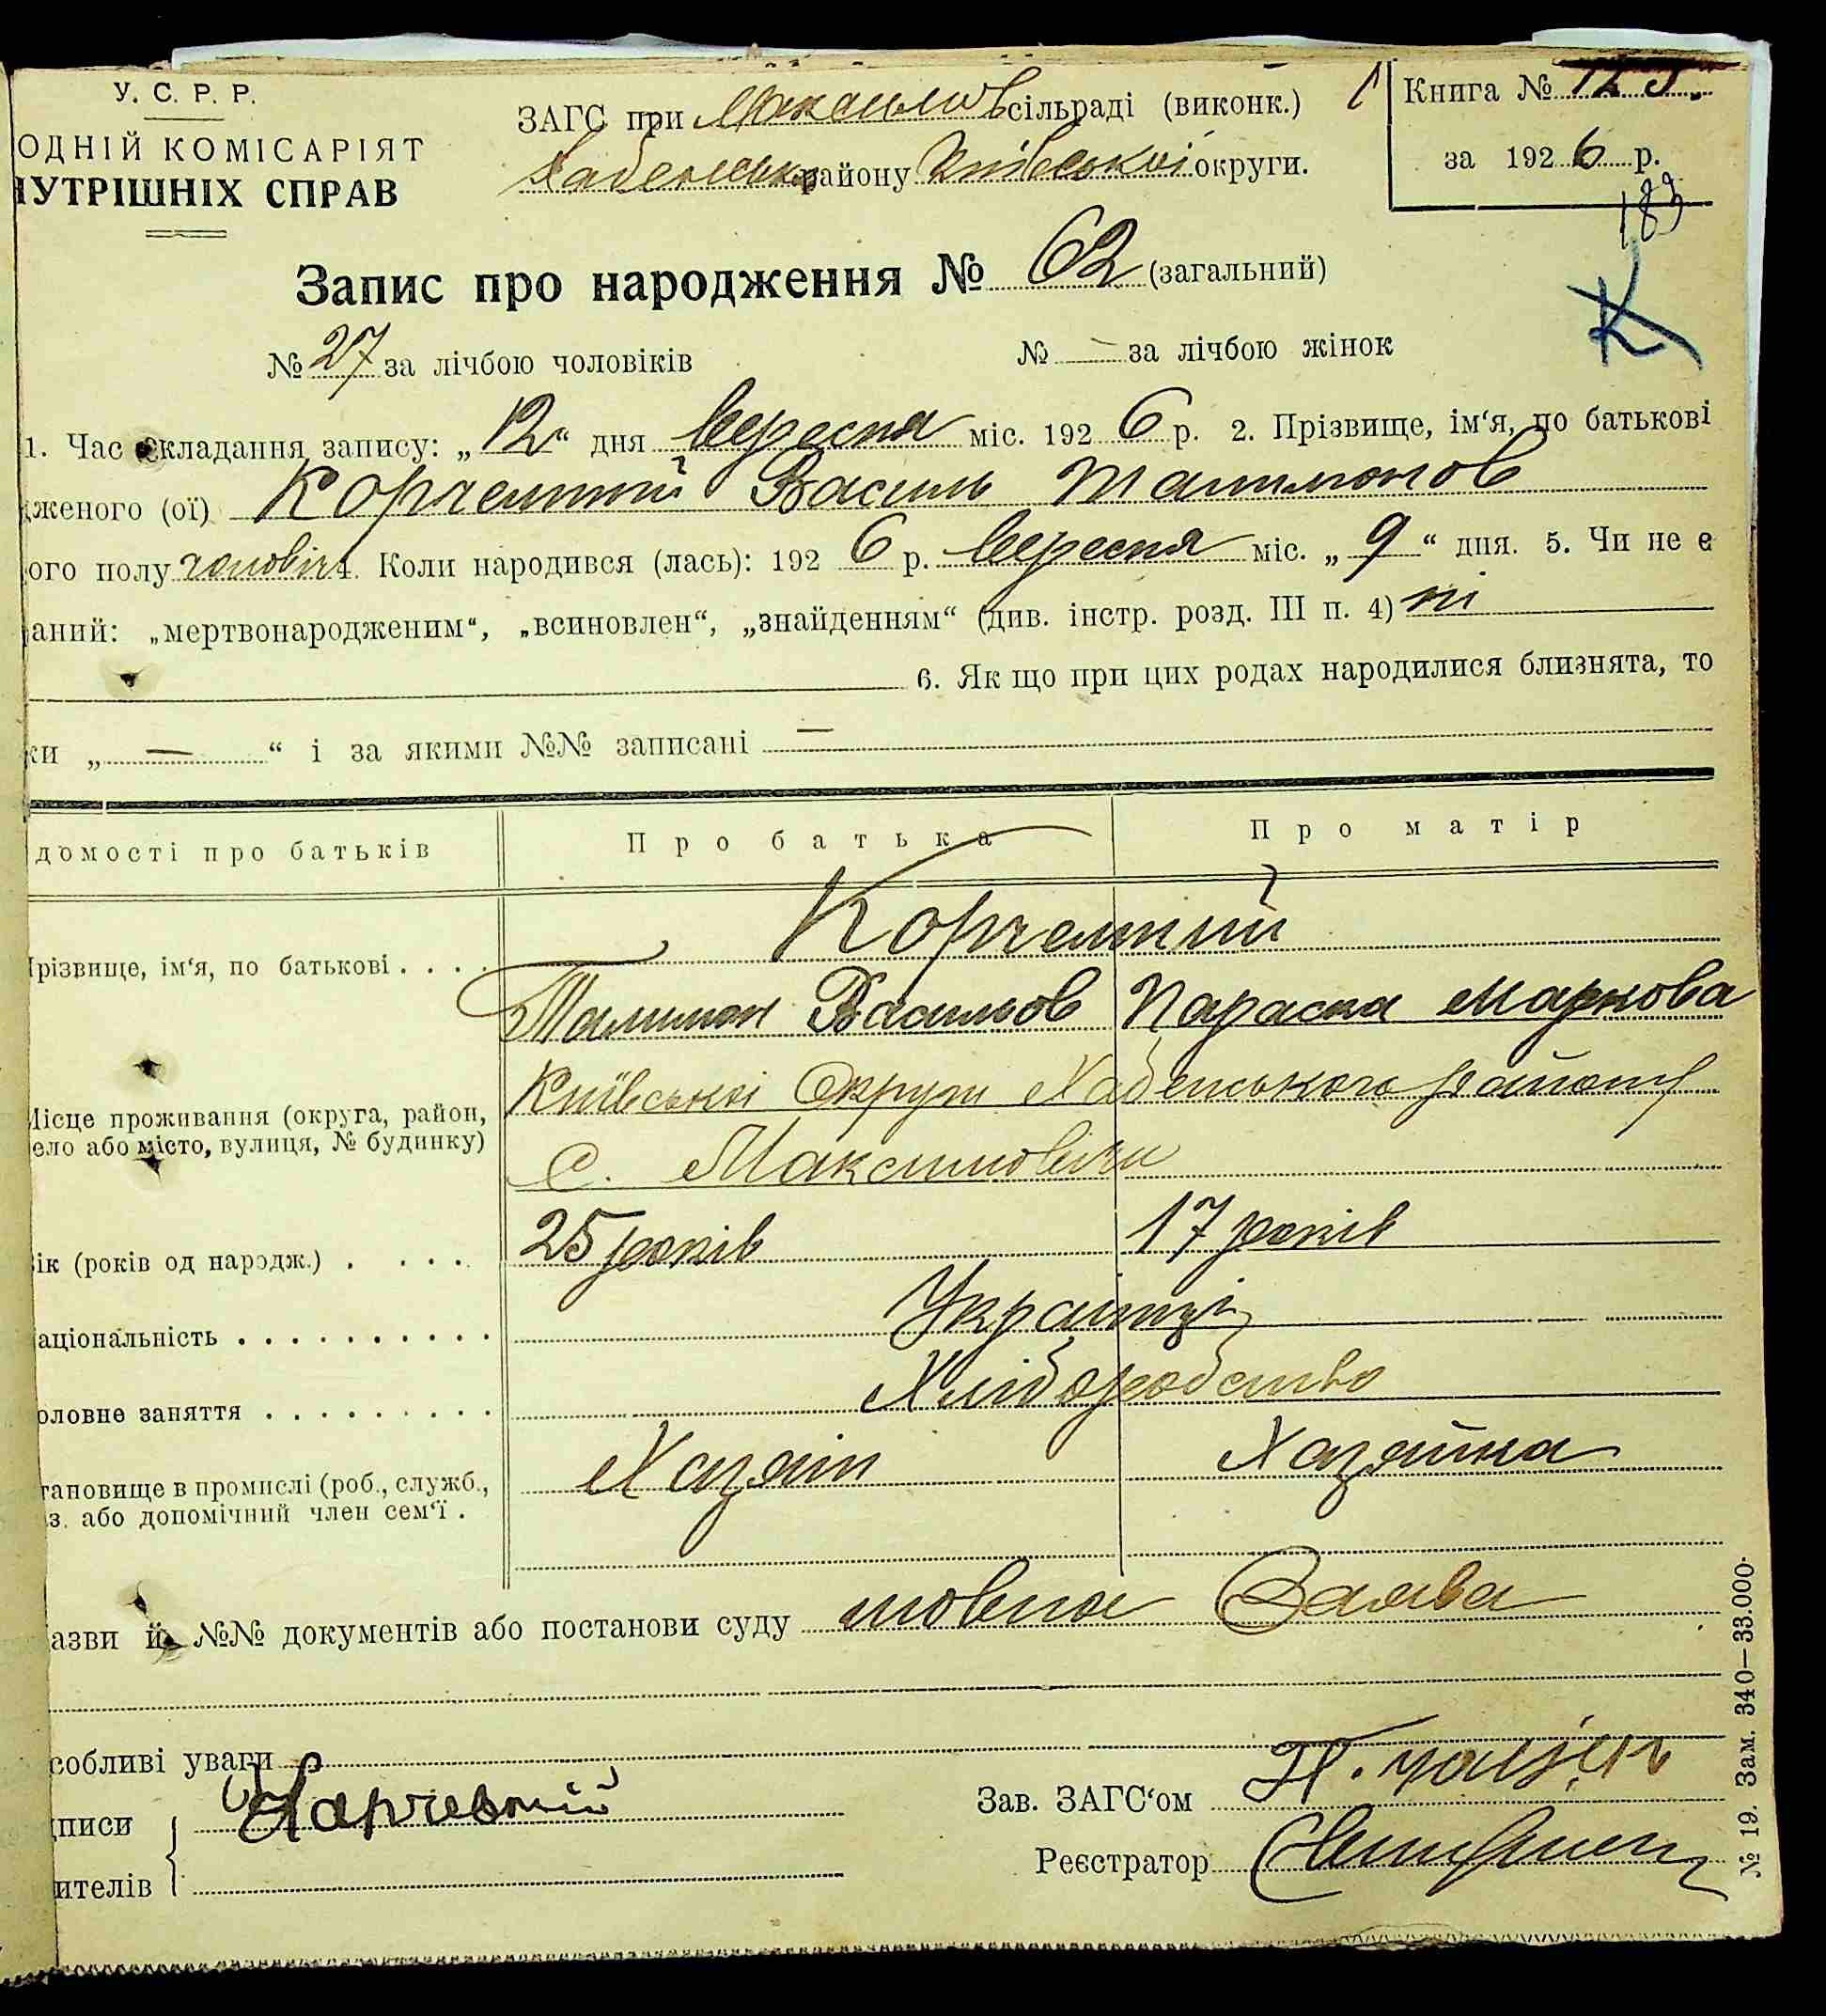 У. С. Р. Р.
ОДНІЙ КОМІСАРІЯТ
НУТРІШНІХ СПРАВ
ЗАГС при сільраді (виконк.)
району Київської округи.
Книга №
за 1926 р.
183
К
Запис про народження № 62 (загальний)
№ 27 за лічбою чоловіків № — за лічбою жінок
1. Час складання запису: „12“ дня вересня міс. 1926 р. 2. Прізвище, ім‘я, по батькові
дженого (ої) Корчевний Василь
ого полу чоловіч 4. Коли народився (лась): 1926 р. вересня міс. „9“ дня. 5. Чи не є
аний: „мертвонародженим“, „всиновлен“, „знайденням“ (див. інстр. розд. III п. 4) ні
6. Як що при цих родах народилися близнята, то
ки „—“ і за якими №№ записані —
домості про батьків Про батька Про матір
Прізвище, ім‘я, по батькові . . . . Корчевний
Васильов Параска Маркова
Місце проживання (округа, район, Київської Округи Хабенського району
село або місто, вулиця, № будинку) с. Максимовичи
ік (років од народж.) . . . . 25 років 17 років
аціональність . . . . . . . . . . Українці
оловне заняття . . . . . . . . . Хліборобство
тановище в промислі (роб., служб., Хазяїн Хазяйка
з. або допомічний член сем‘ї .
азви й №№ документів або постанови суду мовна Заява
собливі уваги
писи
ителів
Зав. ЗАГС‘ом
Реєстратор
№ 19. Зам. 340—33.000.